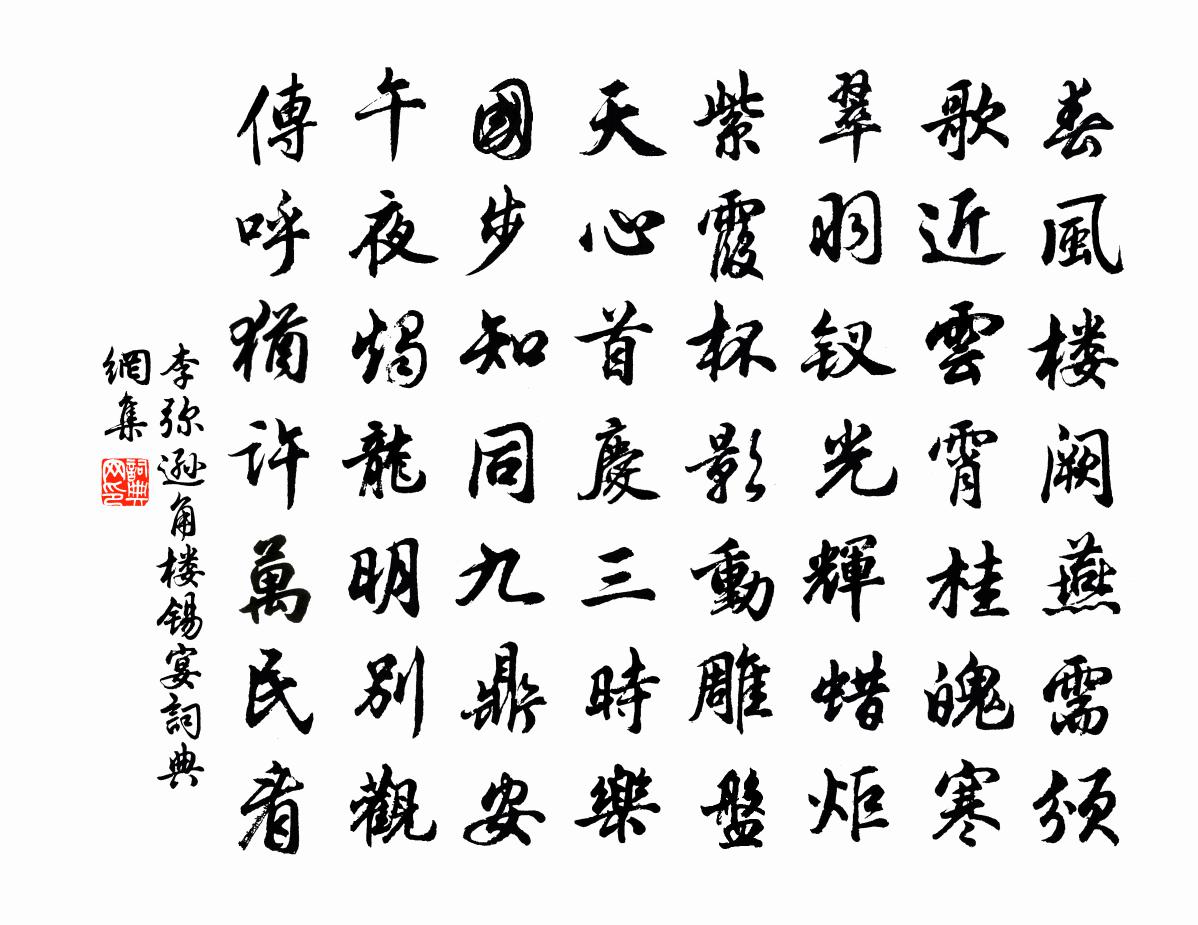 春風楼阙燕需頒
歌近雲霄桂魄寒
翠羽钗光輝蜡炬
紫霞杯影動雕盤
天心首慶三時樂
國步知同九鼎安
午夜燭龍明别觀
傳呼猶許萬民看
李弥遜角楼锡宴詞典
網集
詞典网印